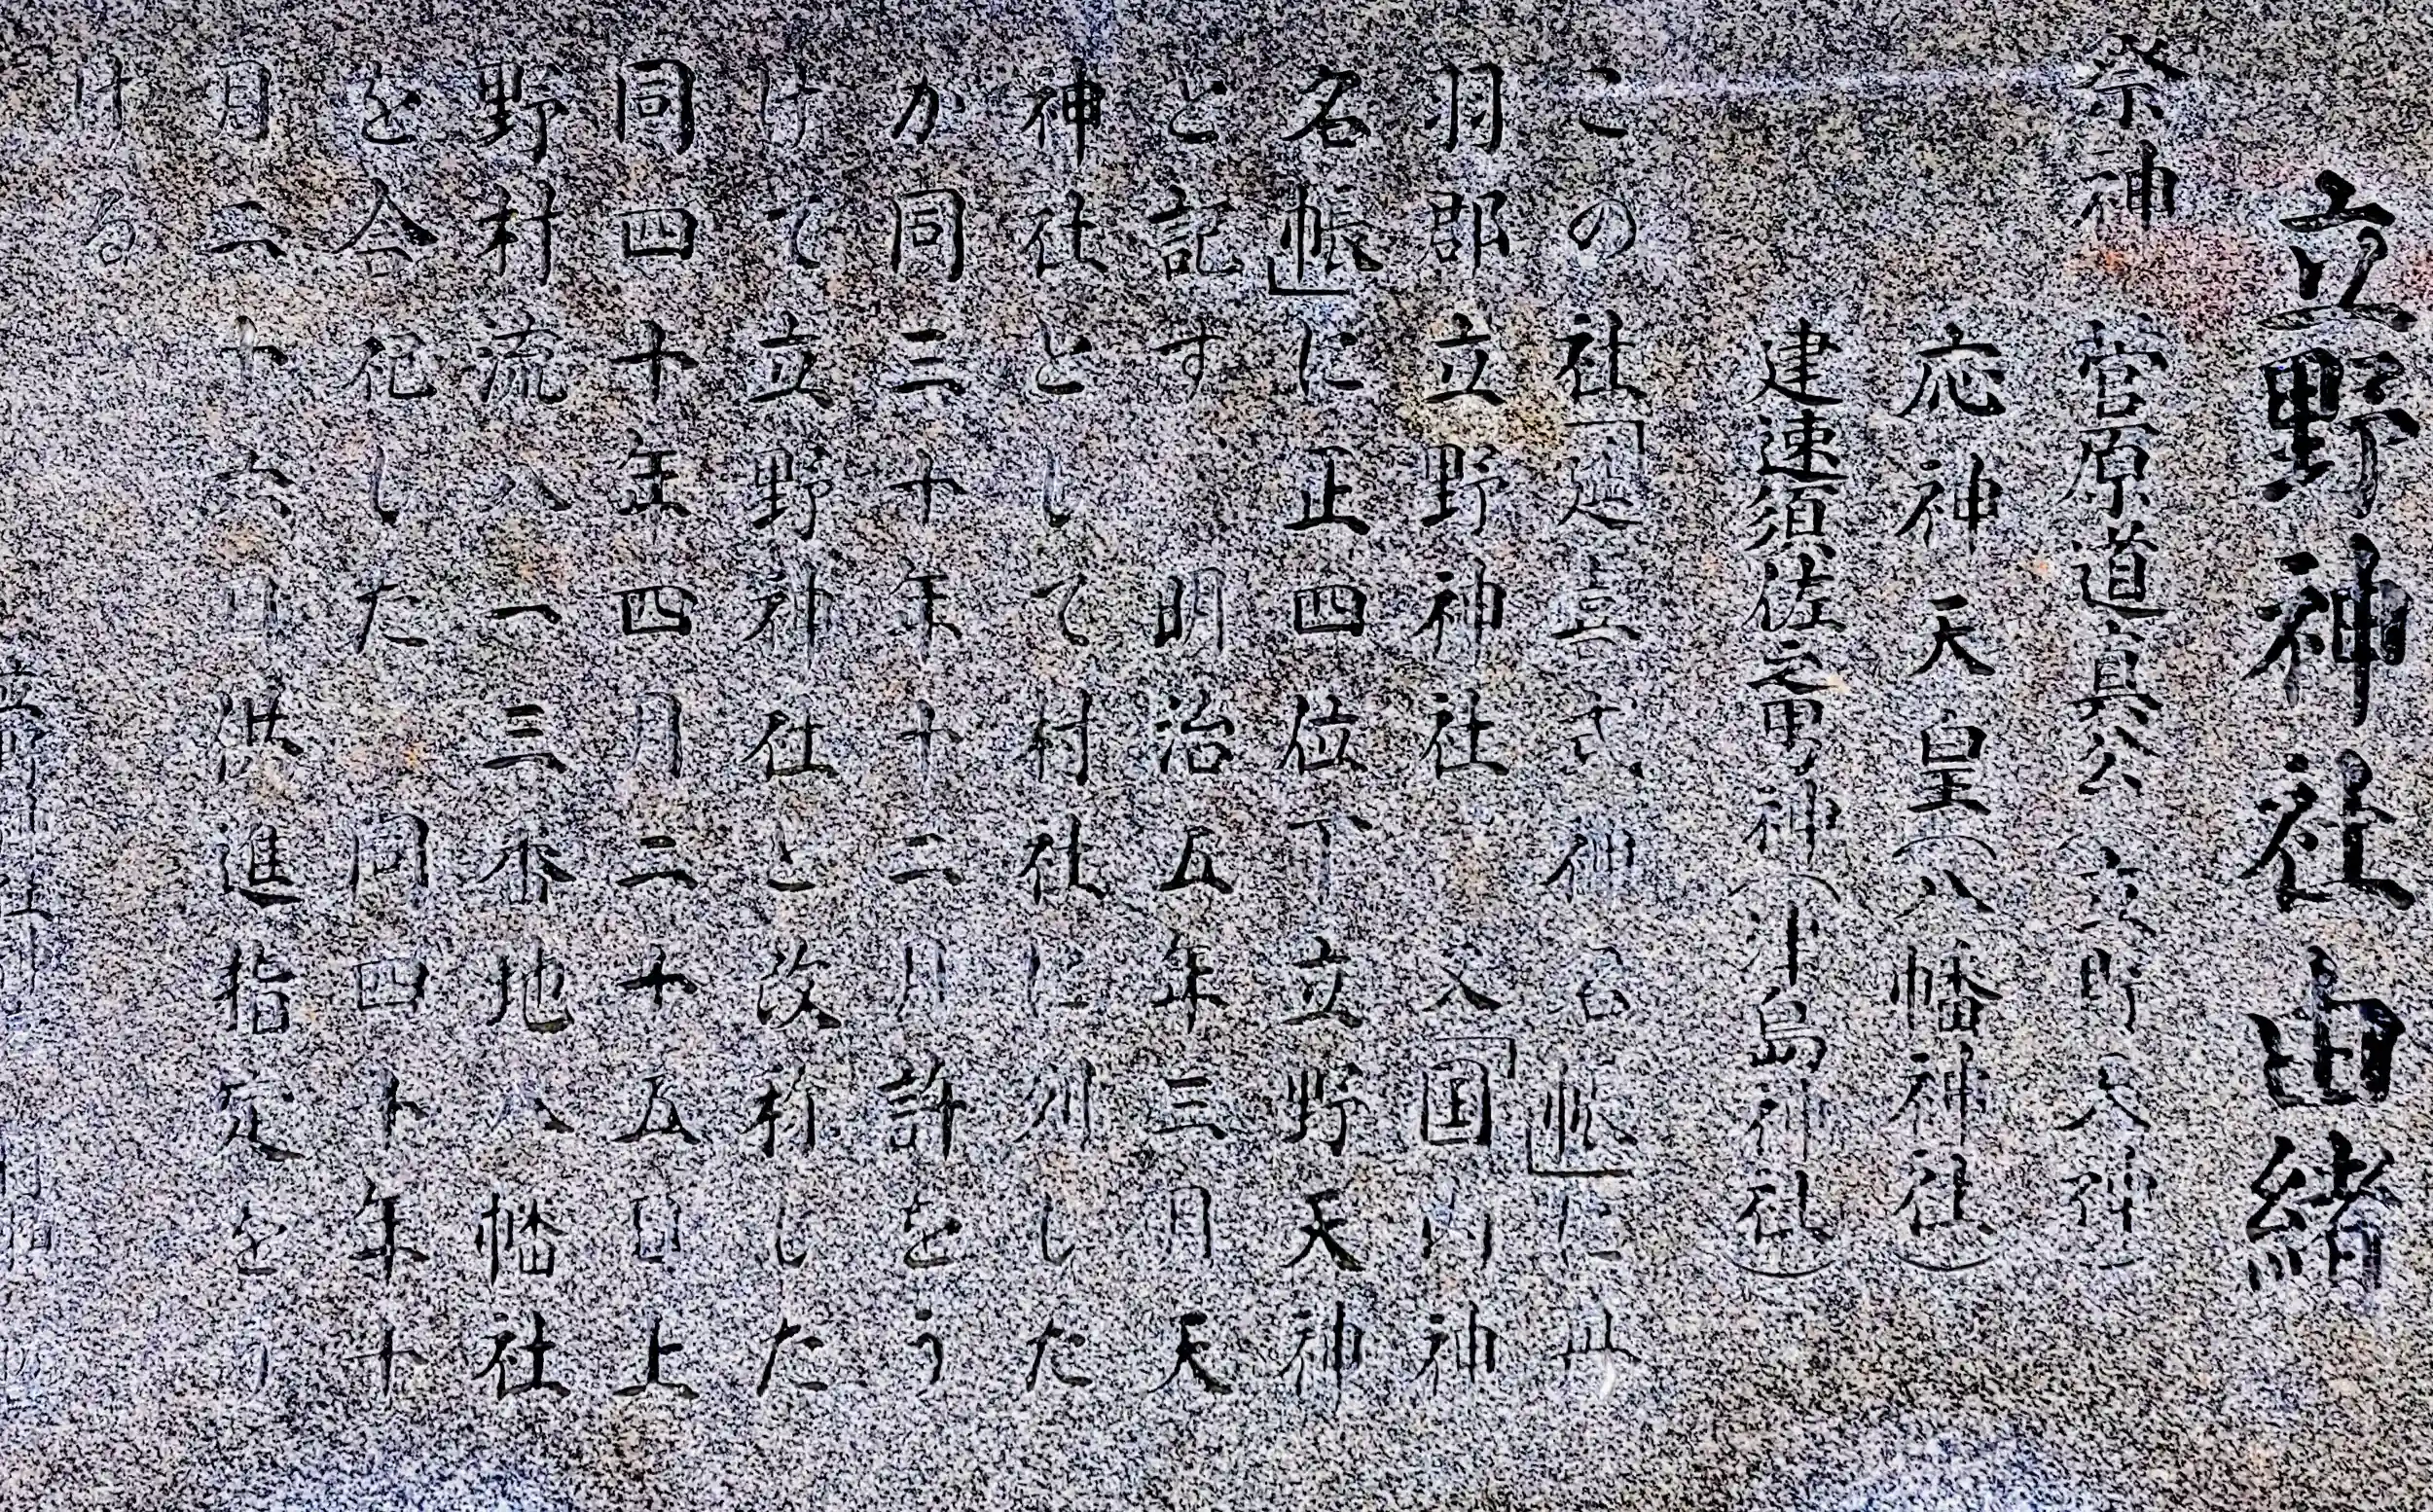 立野神社由緒
祭神 菅原道真公(立野天神)
応神天皇(八幡神社)
建速須佐之男神(津島神社)
この社「延喜式神名帳」に丹
羽郡立野神社 入「国内神
名帳」に正四位下立野天神
と記す、明治五年三月天
神社として村社に列した
が同三十年十二月許をう
けて立野神社と改称した
同四十年四月二十五日上
野村流八一三番地八幡社
を合祀した 同四十年十
月二十六日供進指定をう
ける
立野神社